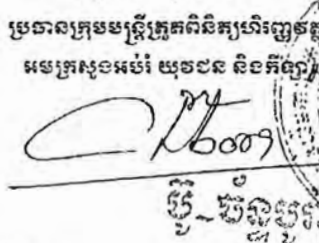 ប្រធានក្រុមមន្ត្រីត្រួតពិនិត្យហិរញ្ញវត្ថុ
អមក្រសួងអប់រំ យុវជន និងកីឡា
ប៊ូ_ច័ន្ទ